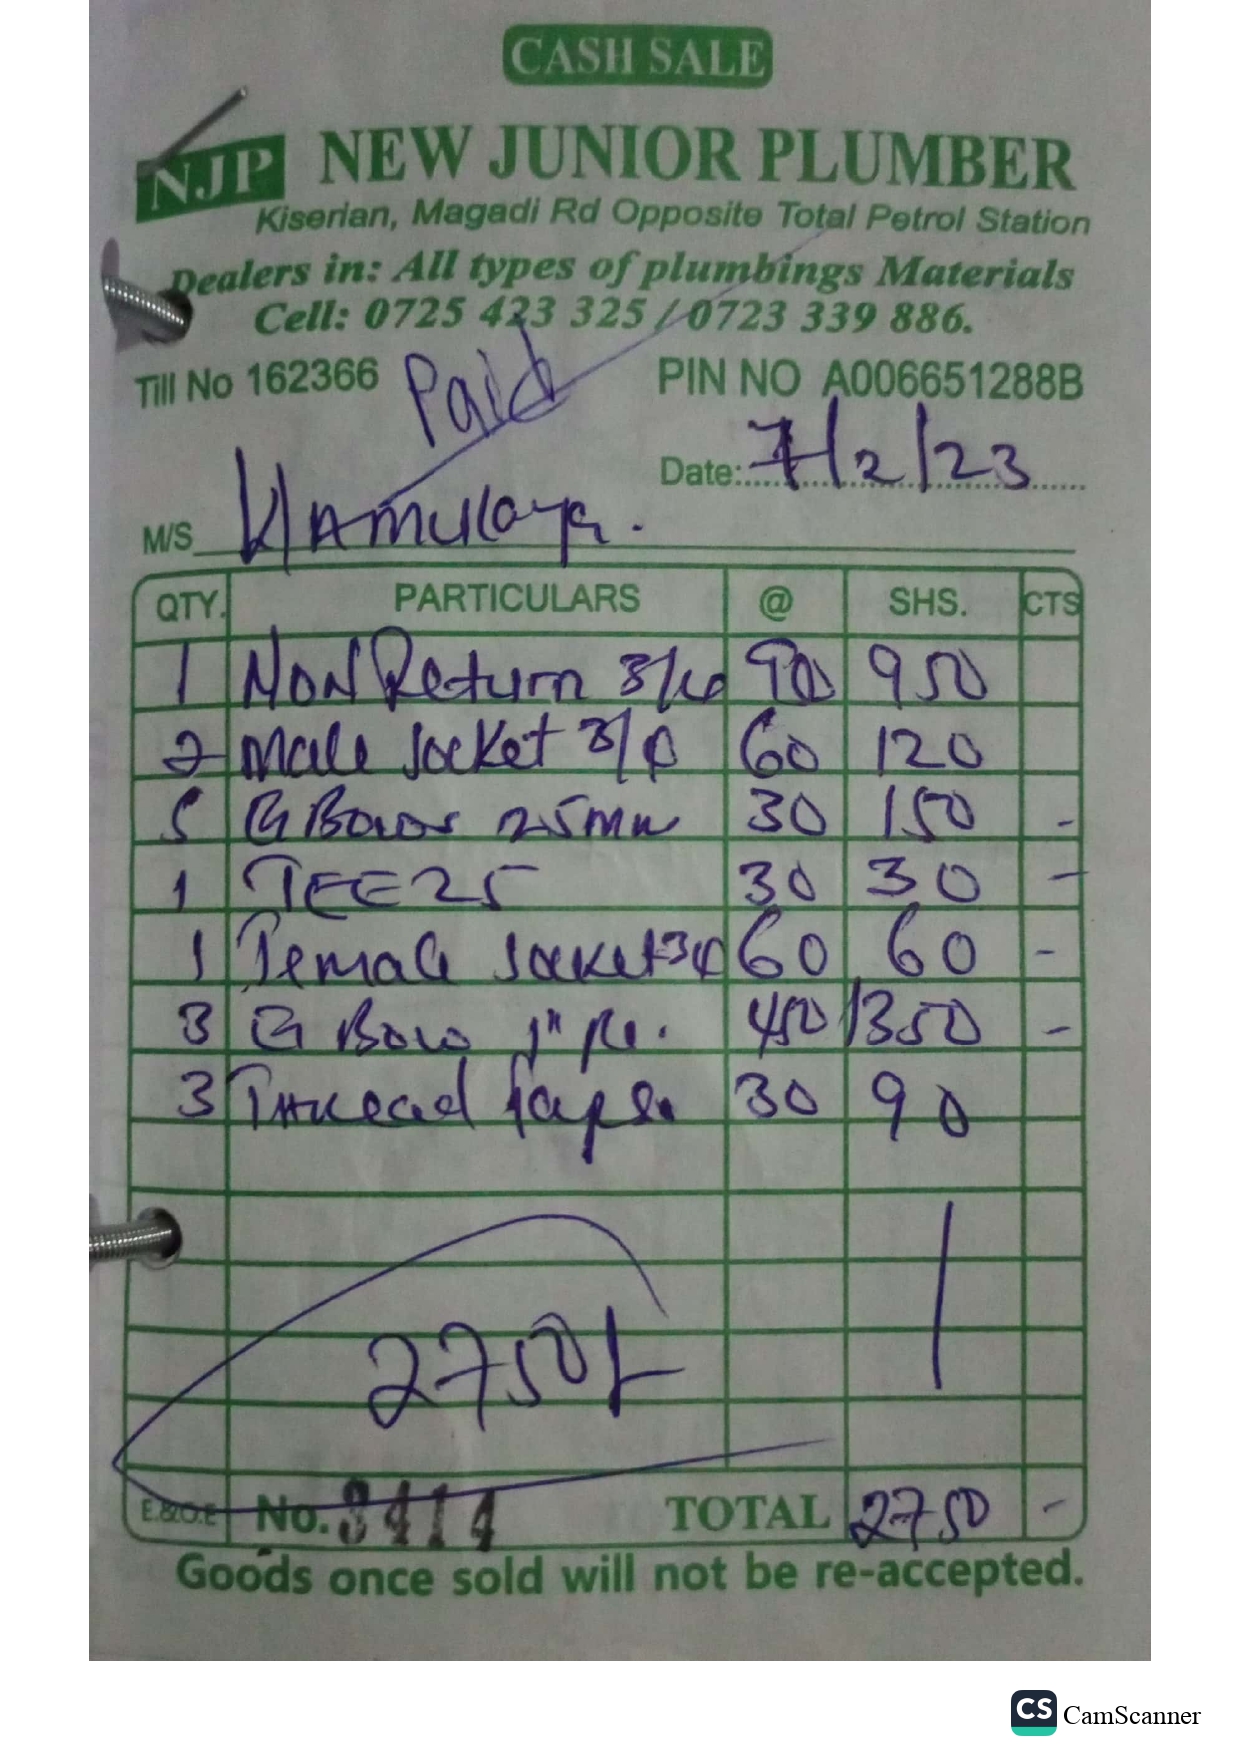 CASH SALE
NJP NEW JUNIOR PLUMBER
Kiserian, Magadi Rd Opposite Total Petrol Station
Dealers in: All types of plumbings Materials
Cell: 0725 423 325 / 0723 339 886.
Till No 162366 Paid PIN NO A006651288B
Date: 7/2/23
M/S
QTY. PARTICULARS @ SHS. CTS
1 NON Return 3/4 950
2 Male Socket 3/4 60 120
5 25mm 30 150 -
1 TEE 25 30 30 -
1 Female Socket 3/4 60 60 -
3 1" 450 1350 -
3 Thread Tape 30 90
2750/-
E.&O.E No. 3414 TOTAL 2750 -
Goods once sold will not be re-accepted.
CS CamScanner